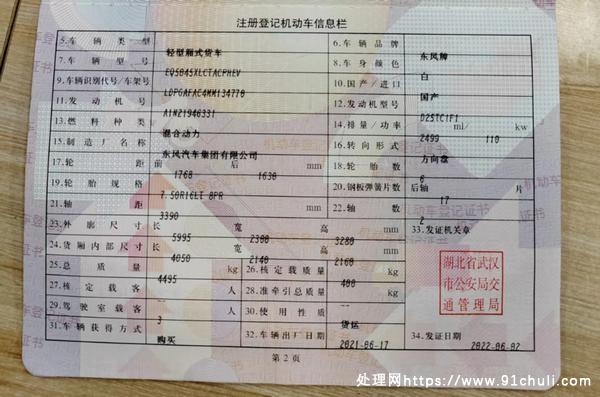 注册登记机动车信息栏
5.车辆类型 轻型厢式货车 6.车辆品牌 东风牌
7.车辆型号 EQ5045XLCTACPHEV 8.车身颜色 白
9.车辆识别代号/车架号 LDPGAFAC4MM134770 10.国产/进口 国产
11.发动机号 A1M21946331 12.发动机型号 D25TC1F1
13.燃料种类 混合动力 14.排量/功率 2499 ml/ 110 kw
15.制造厂名称 东风汽车集团有限公司 16.转向形式 方向盘
17.轮距 前 1760 后 1630 mm 18.轮胎数 6
19.轮胎规格 7.50R16LT 8PR 20.钢板弹簧片数 后轴 17 片
21.轴距 3390 mm 22.轴数 2
23.外廓尺寸 长 5995 宽 2300 高 3280 mm 33.发证机关章
24.货厢内部尺寸 长 4050 宽 2140 高 2160 mm
25.总质量 4495 kg 26.核定载质量 400 kg
27.核定载客 -- 人 28.准牵引总质量 -- kg
29.驾驶室载客 3 人 30.使用性质 货运
31.车辆获得方式 购买 32.车辆出厂日期 2021-06-17 34.发证日期 2022-06-02
湖北省武汉
市公安局交
通管理局
第2页
处理网https://www.91chuli.com/